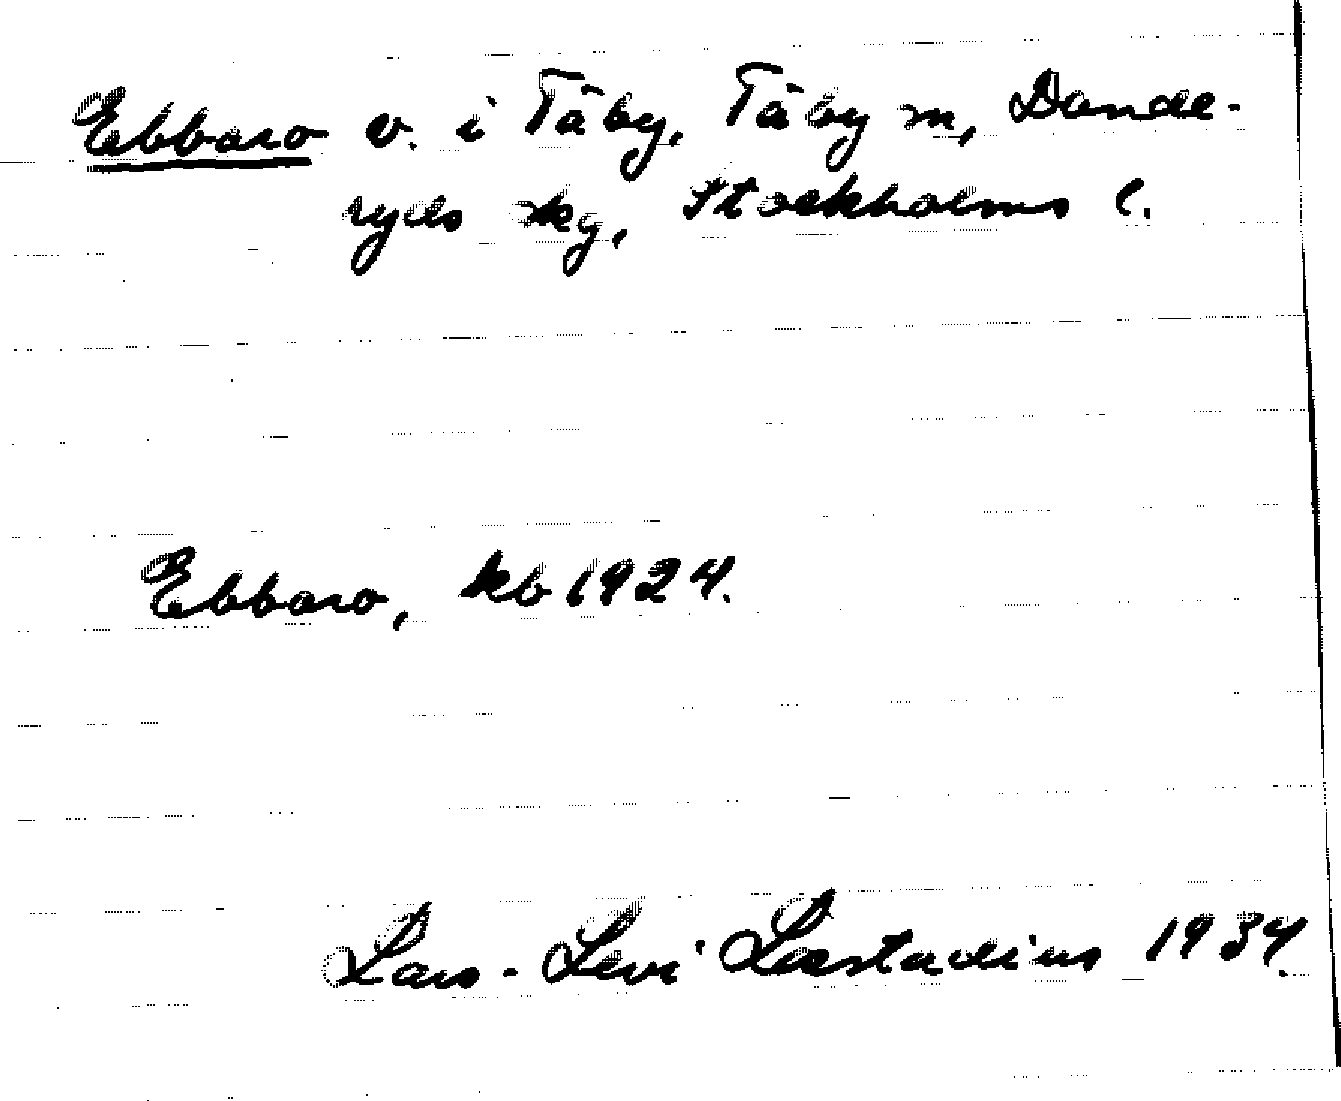 Ebbaro v. i Täby, Täby sn, Dande-
ryds skg, Stockholms l.
Ebbaro, kb 1924.
Lars-Levi Læstadius 1934.